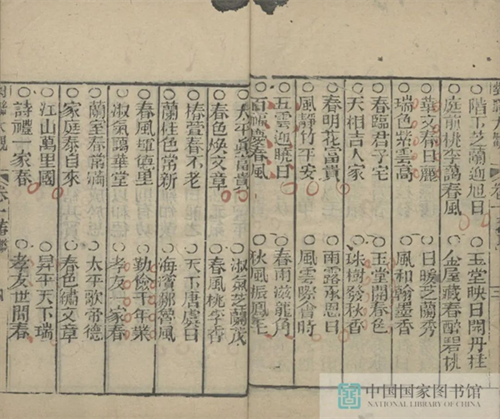 階下芝迎旭日
玉堂日丹桂
庭前桃李春風
金屋藏春醉碧桃
華文春日麗
日暖芝蘭秀
瑞色紫雲高
風和翰墨香
春臨君子宅
玉堂開春色
天相吉人家
珠樹發秋香
春明花富貴
雨露承恩日
風靜竹平安
風雲際會時
五雲迎曉日
春雨滋龍角
百福春風
秋風振鳳毛
太平富貴
淑氣芝蘭茂
春色煥文章
春風桃李香
椿萱春不老
天下唐虞日
蘭桂色常新
海濱鄒魯風
春風德里
勤儉千年業
淑氣靄華堂
孝友一家春
蘭至春
太平歌帝德
家庭泰自來
春色繡文章
江山萬里國
昇平天下瑞
詩禮一家春
孝友世間春
中国国家图书馆
NATIONAL LIBRARY OF CHINA